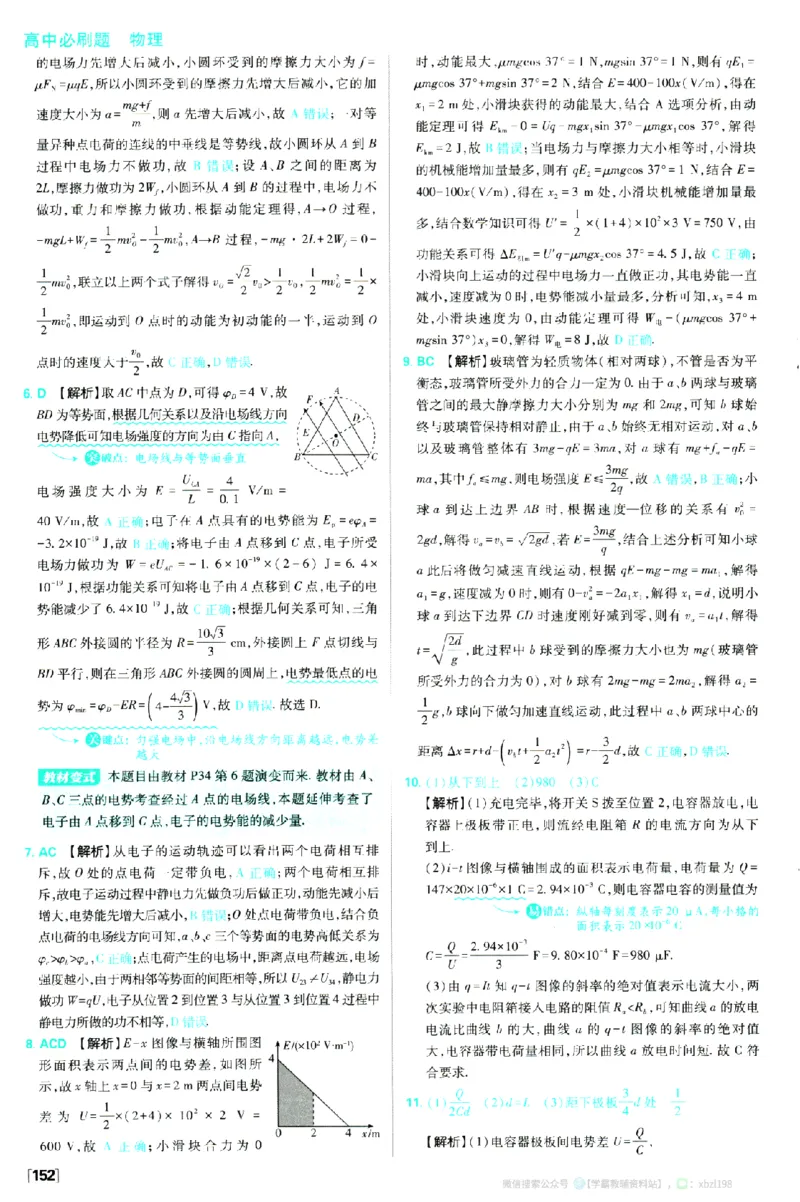 高中必刷题 物理
的电场力先增大后减小,小圆环受到的摩擦力大小为 f=
μF_N=μqE,所以小圆环受到的摩擦力先增大后减小,它的加
速度大小为 a=(mg+f)/m,则 a 先增大后减小,故 A 错误;一对等
量异种点电荷的连线的中垂线是等势线,故小圆环从 A 到 B
过程中电场力不做功,故 B 错误;设 A、B 之间的距离为
2L,摩擦力做功为 2W_f,小圆环从 A 到 B 的过程中,电场力不
做功,重力和摩擦力做功,根据动能定理得,A→O 过程,
-mgL+W_f=1/2 mv_O²-1/2 mv_0²,A→B 过程,-mg·2L+2W_f=0-
1/2 mv_0²,联立以上两个式子解得 v_O=√2/2 v_0>1/2 v_0,1/2 mv_O²=1/2×
1/2 mv_0²,即运动到 O 点时的动能为初动能的一半,运动到 O
点时的速度大于 v_0/2,故 C 正确,D 错误.
6. D 【解析】取 AC 中点为 D,可得 φ_D=4 V,故
BD 为等势面,根据几何关系以及沿电场线方向
电势降低可知电场强度的方向为由 C 指向 A,
突破点:电场线与等势面垂直
A
F
D
E
O
B
C
电场强度大小为 E=U_CA/L=4/0.1 V/m=
40 V/m,故 A 正确;电子在 A 点具有的电势能为 E_p=eφ_A=
-3.2×10⁻¹⁹ J,故 B 正确;将电子由 A 点移到 C 点,电子所受
电场力做功为 W=eU_AC=-1.6×10⁻¹⁹×(2-6) J=6.4×
10⁻¹⁹ J,根据功能关系可知将电子由 A 点移到 C 点,电子的电
势能减少了 6.4×10⁻¹⁹ J,故 C 正确;根据几何关系可知,三角
形 ABC 外接圆的半径为 R=10√3/3 cm,外接圆上 F 点切线与
BD 平行,则在三角形 ABC 外接圆的圆周上,电势最低点的电
势为 φ_min=φ_D-ER=(4-4√3/3) V,故 D 错误.故选 D.
关键点:匀强电场中,沿电场线方向距离越远,电势差
越大
教材变式 本题目由教材 P34 第 6 题演变而来.教材由 A、
B、C 三点的电势考查经过 A 点的电场线,本题延伸考查了
电子由 A 点移到 C 点,电子的电势能的减少量.
7. AC 【解析】从电子的运动轨迹可以看出两个电荷相互排
斥,故 O 处的点电荷一定带负电,A 正确;两个电荷相互排
斥,故电子运动过程中静电力先做负功后做正功,动能先减小后
增大,电势能先增大后减小,B 错误;O 处点电荷带负电,结合负
点电荷的电场线方向可知,a、b、c 三个等势面的电势高低关系为
φ_c>φ_b>φ_a,C 正确;点电荷产生的电场中,距离点电荷越远,电场
强度越小,由于两相邻等势面的间距相等,所以 U₂₃≠U₃₄,静电力
做功 W=qU,电子从位置 2 到位置 3 与从位置 3 到位置 4 过程中
静电力所做的功不相等,D 错误.
8. ACD 【解析】E-x 图像与横轴所围图
形面积表示两点间的电势差,如图所
示,故 x 轴上 x=0 与 x=2 m 两点间电势
差为 U=1/2×(2+4)×10²×2 V=
600 V,故 A 正确;小滑块合力为 0
E/(×10² V·m⁻¹)
4
0 2 4 x/m
[152]
时,动能最大,μmgcos 37°=1 N,mgsin 37°=1 N,则有 qE₁=
μmgcos 37°+mgsin 37°=2 N,结合 E=400-100x(V/m),得在
x₁=2 m 处,小滑块获得的动能最大,结合 A 选项分析,由动
能定理可得 E_km-0=Uq-mgx₁sin 37°-μmgx₁cos 37°,解得
E_km=2 J,故 B 错误;当电场力与摩擦力大小相等时,小滑块
的机械能增加量最多,则有 qE₂=μmgcos 37°=1 N,结合 E=
400-100x(V/m),得在 x₂=3 m 处,小滑块机械能增加量最
多,结合数学知识可得 U′=1/2×(1+4)×10²×3 V=750 V,由
功能关系可得 ΔE_机m=U′q-μmgx₂cos 37°=4.5 J,故 C 正确;
小滑块向上运动的过程中电场力一直做正功,其电势能一直
减小,速度减为 0 时,电势能减小量最多,分析可知,x₃=4 m
处,小滑块速度为 0,由动能定理可得 W_电-(μmgcos 37°+
mgsin 37°)x₃=0,解得 W_电=8 J,故 D 正确.
9. BC 【解析】玻璃管为轻质物体(相对两球),不管是否为平
衡态,玻璃管所受外力的合力一定为 0.由于 a、b 两球与玻璃
管之间的最大静摩擦力大小分别为 mg 和 2mg,可知 b 球始
终与玻璃管保持相对静止,由于 a、b 始终无相对运动,对 a、b
以及玻璃管整体有 3mg-qE=3ma,对 a 球有 mg+f_a-qE=
ma,其中 f_a≤mg,则电场强度 E≤3mg/2q,故 A 错误,B 正确;小
球 a 到达上边界 AB 时,根据速度—位移的关系有 v_a²=
2gd,解得 v_a=v_b=√(2gd),若 E=3mg/q,结合上述分析可知小球
a 此后将做匀减速直线运动,根据 qE-mg-mg=ma₁,解得
a₁=g,速度减为 0 时,则有 0-v_a²=-2a₁x₁,解得 x₁=d,说明小
球 a 到达下边界 CD 时速度刚好减到零,则有 v_a=a₁t,解得
t=√(2d/g),此过程中 b 球受到的摩擦力大小也为 mg(玻璃管
所受外力的合力为 0),对 b 球有 2mg-mg=2ma₂,解得 a₂=
1/2 g,b 球向下做匀加速直线运动,此过程中 a、b 两球中心的
距离 Δx=r+d-(v_b t+1/2 a₂t²)=r-3/2 d,故 C 正确,D 错误.
10. (1)从下到上 (2)980 (3)C
【解析】(1)充电完毕,将开关 S 拨至位置 2,电容器放电,电
容器上极板带正电,则流经电阻箱 R 的电流方向为从下
到上.
(2)i-t 图像与横轴围成的面积表示电荷量,电荷量为 Q=
147×20×10⁻⁶×1 C=2.94×10⁻³ C,则电容器电容的测量值为
易错点:纵轴每刻度表示 20 μA,每小格的
面积表示 20×10⁻⁶ C
C=Q/U=2.94×10⁻³/3 F=9.80×10⁻⁴ F=980 μF.
(3)由 q=It 知 q-t 图像的斜率的绝对值表示电流大小,两
次实验中电阻箱接入电路的阻值 R_a<R_b,可知曲线 a 的放电
电流比曲线 b 的大,曲线 a 的 q-t 图像的斜率的绝对值
大,电容器带电荷量相同,所以曲线 a 放电时间短.故 C 符
合要求.
11. (1) Q/2Cd (2)d=L (3)距下极板 3/4 d 处 1/2
【解析】(1)电容器极板间电势差 U=Q/C,
微信搜索公众号 【学霸教辅资料站】, : xbzl198